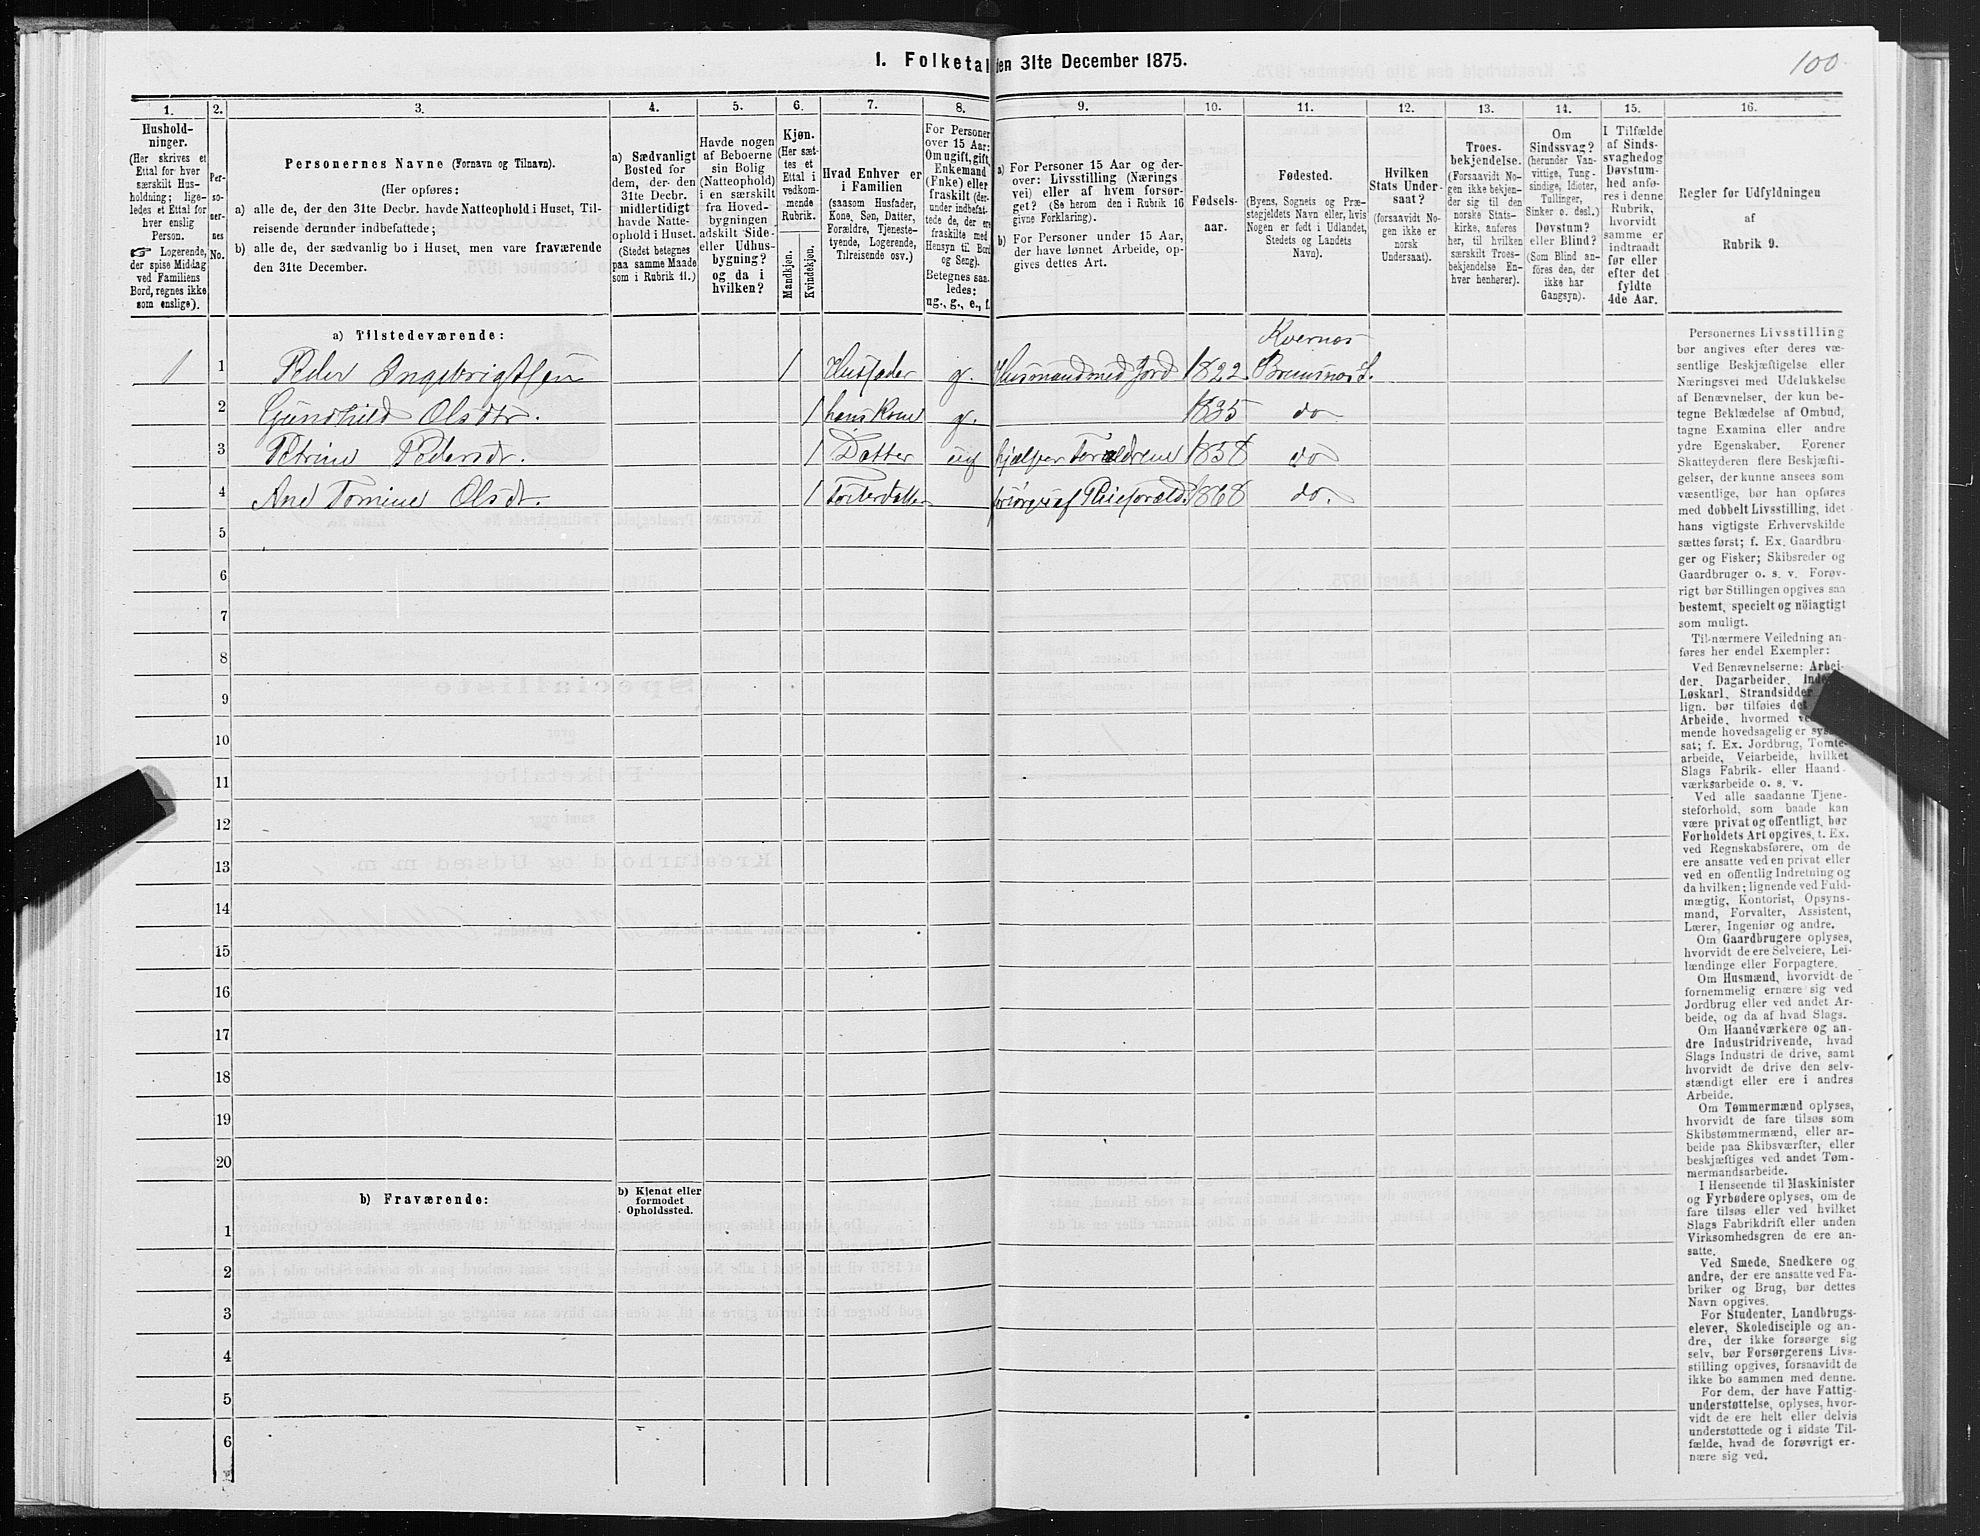 1. Folketal den 31te December 1875.
100
1.
2.
3.
4.
5.
6.
7.
8.
9.
10.
11.
12.
13.
14.
15.
16.
Hushold-
ninger.
(Her skrives et
Ettal for hver
særskilt Hus-
holdning; lige-
ledes et Ettal for
hver enslig
Person.
☞ Logerende,
der spise Middag
ved Familiens
Bord, regnes ikke
som enslige).
Per-
so-
ner-
nes
No.
Personernes Navne (Fornavn og Tilnavn).
(Her opføres:
a) alle de, der den 31te Decbr. havde Natteophold i Huset, Til-
reisende derunder indbefattede;
b) alle de, der sædvanlig bo i Huset, men vare fraværende
den 31te December.
a) Sædvanligt
Bosted for
dem, der den
31te Decbr.
midlertidigt
havde Natte-
ophold i Huset.
(Stedet betegnes
paa samme Maade
som i Rubrik 11.)
Havde nogen
af Beboerne
sin Bolig
(Natteophold)
i en særskilt
fra Hoved-
bygningen
adskilt Side-
eller Udhus-
bygning?
og da i
hvilken?
Kjøn.
(Her sæt-
tes et
Ettal i
vedkom-
mende
Rubrik.
Mandkjøn.
Kvindekjøn.
Hvad Enhver er
i Familien
(saasom Husfader,
Kone, Søn, Datter,
Forældre, Tjeneste-
tyende, Logerende,
Tilreisende osv.)
For Personer
over 15 Aar:
Om ugift, gift,
Enkemand
(Enke) eller
fraskilt (der-
under indbefat-
tede de, der ere
fraskilte med
Hensyn til Bord
og Seng).
Betegnes saa-
ledes:
ug., g., e., f.
a) For Personer 15 Aar og der-
over: Livsstilling (Nærings
vei) eller af hvem forsør-
get? (Se herom den i Rubrik 16
givne Forklaring).
b) For Personer under 15 Aar,
der have lønnet Arbeide, op-
gives dettes Art.
Fødsels-
aar.
Fødested.
(Byens, Sognets og Præ-
stegjeldets Navn eller, hvis
Nogen er født i Udlandet,
Stedets og Landets
Navn).
Hvilken
Stats Under-
saat?
(forsaavidt No-
gen ikke er
norsk
Undersaat).
Troes-
bekjendelse.
(Forsaavidt No-
gen ikke bekjen-
der sig til den
norske Stats-
kirke, anføres
her, til hvilken
særskilt Troes-
bekjendelse En-
hver henhører).
Om
Sindssvag?
(herunder Van-
vittige, Tung-
sindige, Idioter,
Tullinger,
Sinker o. desl.)
Døvstum?
eller Blind?
(Som Blind an-
føres den, der
ikke har
Gangsyn).
I Tilfælde
af Sinds-
svaghed og
Døvstum-
hed anfø-
res i denne
Rubrik,
hvorvidt
samme er
indtraadt
før eller
efter det
fyldte
4de Aar.
Regler for Udfyldningen
af
Rubrik 9.
a) Tilstedeværende:
Kvernes
1 1 Peder Ingebrigtsen 1 Husfader g. Husmand med Jord 1822 Bremsnes S.
2 Gundhild Olsdtr. 1 hans Kone g. 1835 do
3 Petrine Pedersdr. 1 Datter ug hjælper Forældrene 1858 do
4 Ane Tomine Olsdtr. 1 Fosterdatter forsørges af Pleieforæld. 1868 do.
5
6
7
8
9
10
11
12
13
14
15
16
17
18
19
20
b) Fraværende:
b) Kjendt eller
formodet
Opholdssted.
1
2
3
4
5
6
Personernes Livsstilling
bør angives efter deres væ-
sentlige Beskjæftigelse eller
Næringsvei med Udelukkelse
af Benævnelser, der kun be-
tegne Beklædelse af Ombud,
tagne Examina eller andre
ydre Egenskaber. Forener
Skatteyderen flere Beskjæfti-
gelser, der kunne ansees som
væsentlige, bør han opføres
med dobbelt Livsstilling, idet
hans vigtigste Erhvervskilde
sættes først; f. Ex. Gaardbru-
ger og Fisker; Skibsreder og
Gaardbruger o. s. v. Forøv-
rigt bør Stillingen opgives saa
bestemt, specielt og nöiagtigt
som muligt.
Til nærmere Veiledning an-
føres her endel Exempler:
Ved Benævnelserne: Arbei-
der, Dagarbeider,
Løskarl, Strandsidder
lign. bør tilføies det
Arbeide, hvormed
mende hovedsagelig er
sat; f. Ex. Jordbrug, Tomte-
arbeide, Veiarbeide, hvilket
Slags Fabrik- eller Haand-
værksarbeide o. s. v.
Ved alle saadanne Tjene-
steforhold, som baade kan
være privat og offentligt, bør
Forholdets Art opgives, t. Ex.
ved Regnskabsførere, om de
ere ansatte ved en privat eller
ved en offentlig Indretning og
da hvilken; lignende ved Fuld-
mægtig, Kontorist, Opsyns-
mand, Forvalter, Assistent,
Lærer, Ingeniør og andre.
Om Gaardbrugere oplyses,
hvorvidt de ere Selveiere, Lei-
lændinge eller Forpagtere.
Om Husmænd, hvorvidt de
fornemmelig ernære sig ved
Jordbrug eller ved andet Ar-
beide, og da af hvad Slags.
Om Haandværkere og an-
dre Industridrivende, hvad
Slags Industri de drive, samt
hvorvidt de drive den selv-
stændigt eller ere i andres
Arbeide.
Om Tømmermænd oplyses,
hvorvidt de fare tilsøs som
Skibstømmermænd, eller ar-
beide paa Skibsværfter, eller
beskjæftiges ved andet Tøm-
mermandsarbeide.
I Henseende til Maskinister
og Fyrbødere oplyses, om de
fare tilsøs eller ved hvilket
Slags Fabrikdrift eller anden
Virksomhedsgren de ere an-
satte.
Ved Smede, Snedkere og
andre, der ere ansatte ved Fa-
briker og Brug, bør dettes
Navn opgives.
For Studenter, Landbrugs-
elever, Skoledisciple og an-
dre, der ikke forsørge sig
selv, bør Forsørgerens Livs-
stilling opgives, forsaavidt de
ikke bo sammen med denne.
For dem, der have Fattig-
understøttelse, oplyses, hvor-
vidt de ere helt eller delvis
understøttede og i sidste Til-
fælde, hvad de forøvrigt er-
nære sig ved.